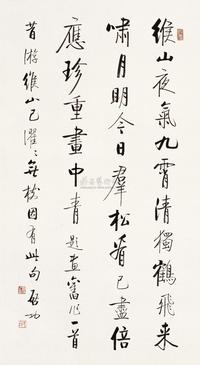 緱山夜氣九霄清獨鶴飛来
嘯月明今日羣松看已盡倍
應珍重畫中青 題畫舊作一首
昔游緱山已濯〻無松因有此句 启功